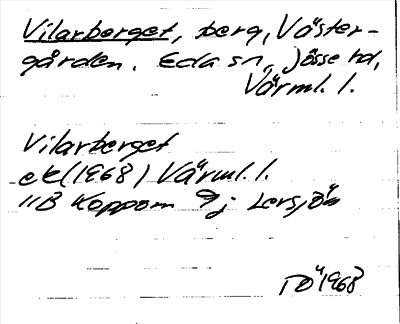 Vilarberget, berg, Väster-
gården. Eda sn, Jösse hd,
Värml. l.
Vilarberget
ek (1968) Värml. l.
11B Koppom 9j Lersjön
TÖ 1968